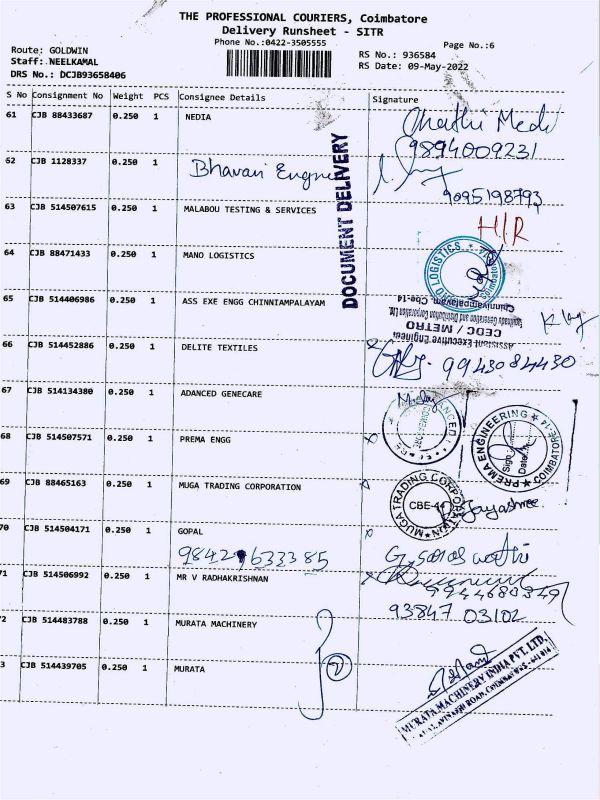 THE PROFESSIONAL COURIERS, Coimbatore
Delivery Runsheet - SITR
Phone No.:0422-3505555
Page No.:6
Route: GOLDWIN
Staff: NEELKAMAL
DRS No.: DCJB93658406
RS No.: 936584
RS Date: 09-May-2022
S No Consignment No Weight PCS Consignee Details Signature
61 CJB 88433687 0.250 1 NEDIA
9894009231
62 CJB 1128337 0.250 1 Bhavani
9095198793
DOCUMENT DELIVERY
63 CJB 514507615 0.250 1 MALABOU TESTING & SERVICES H/R
64 CJB 88471433 0.250 1 MANO LOGISTICS
LOGISTICS
65 CJB 514406986 0.250 1 ASS EXE ENGG CHINNIAMPALAYAM
Assistant Executive Engineer,
CEDC / METRO
Tamilnadu Generation and Distribution Corporation Ltd.,
Chinniyampalayam, Cbe-14.
66 CJB 514452886 0.250 1 DELITE TEXTILES 9943084430
67 CJB 514134380 0.250 1 ADANCED GENECARE
68 CJB 514507571 0.250 1 PREMA ENGG
PREMA ENGINEERING
COIMBATORE-14
Sign
Date
69 CJB 88465163 0.250 1 MUGA TRADING CORPORATION
MUGA TRADING CORPORATION
CBE-14
R. Jayashree
70 CJB 514504171 0.250 1 GOPAL
G. Saraswathi
71 CJB 514506992 0.250 1 MR V RADHAKRISHNAN
93847 03102
72 CJB 514483788 0.250 1 MURATA MACHINERY
73 CJB 514439705 0.250 1 MURATA
2
MURATA MACHINERY INDIA PVT. LTD.